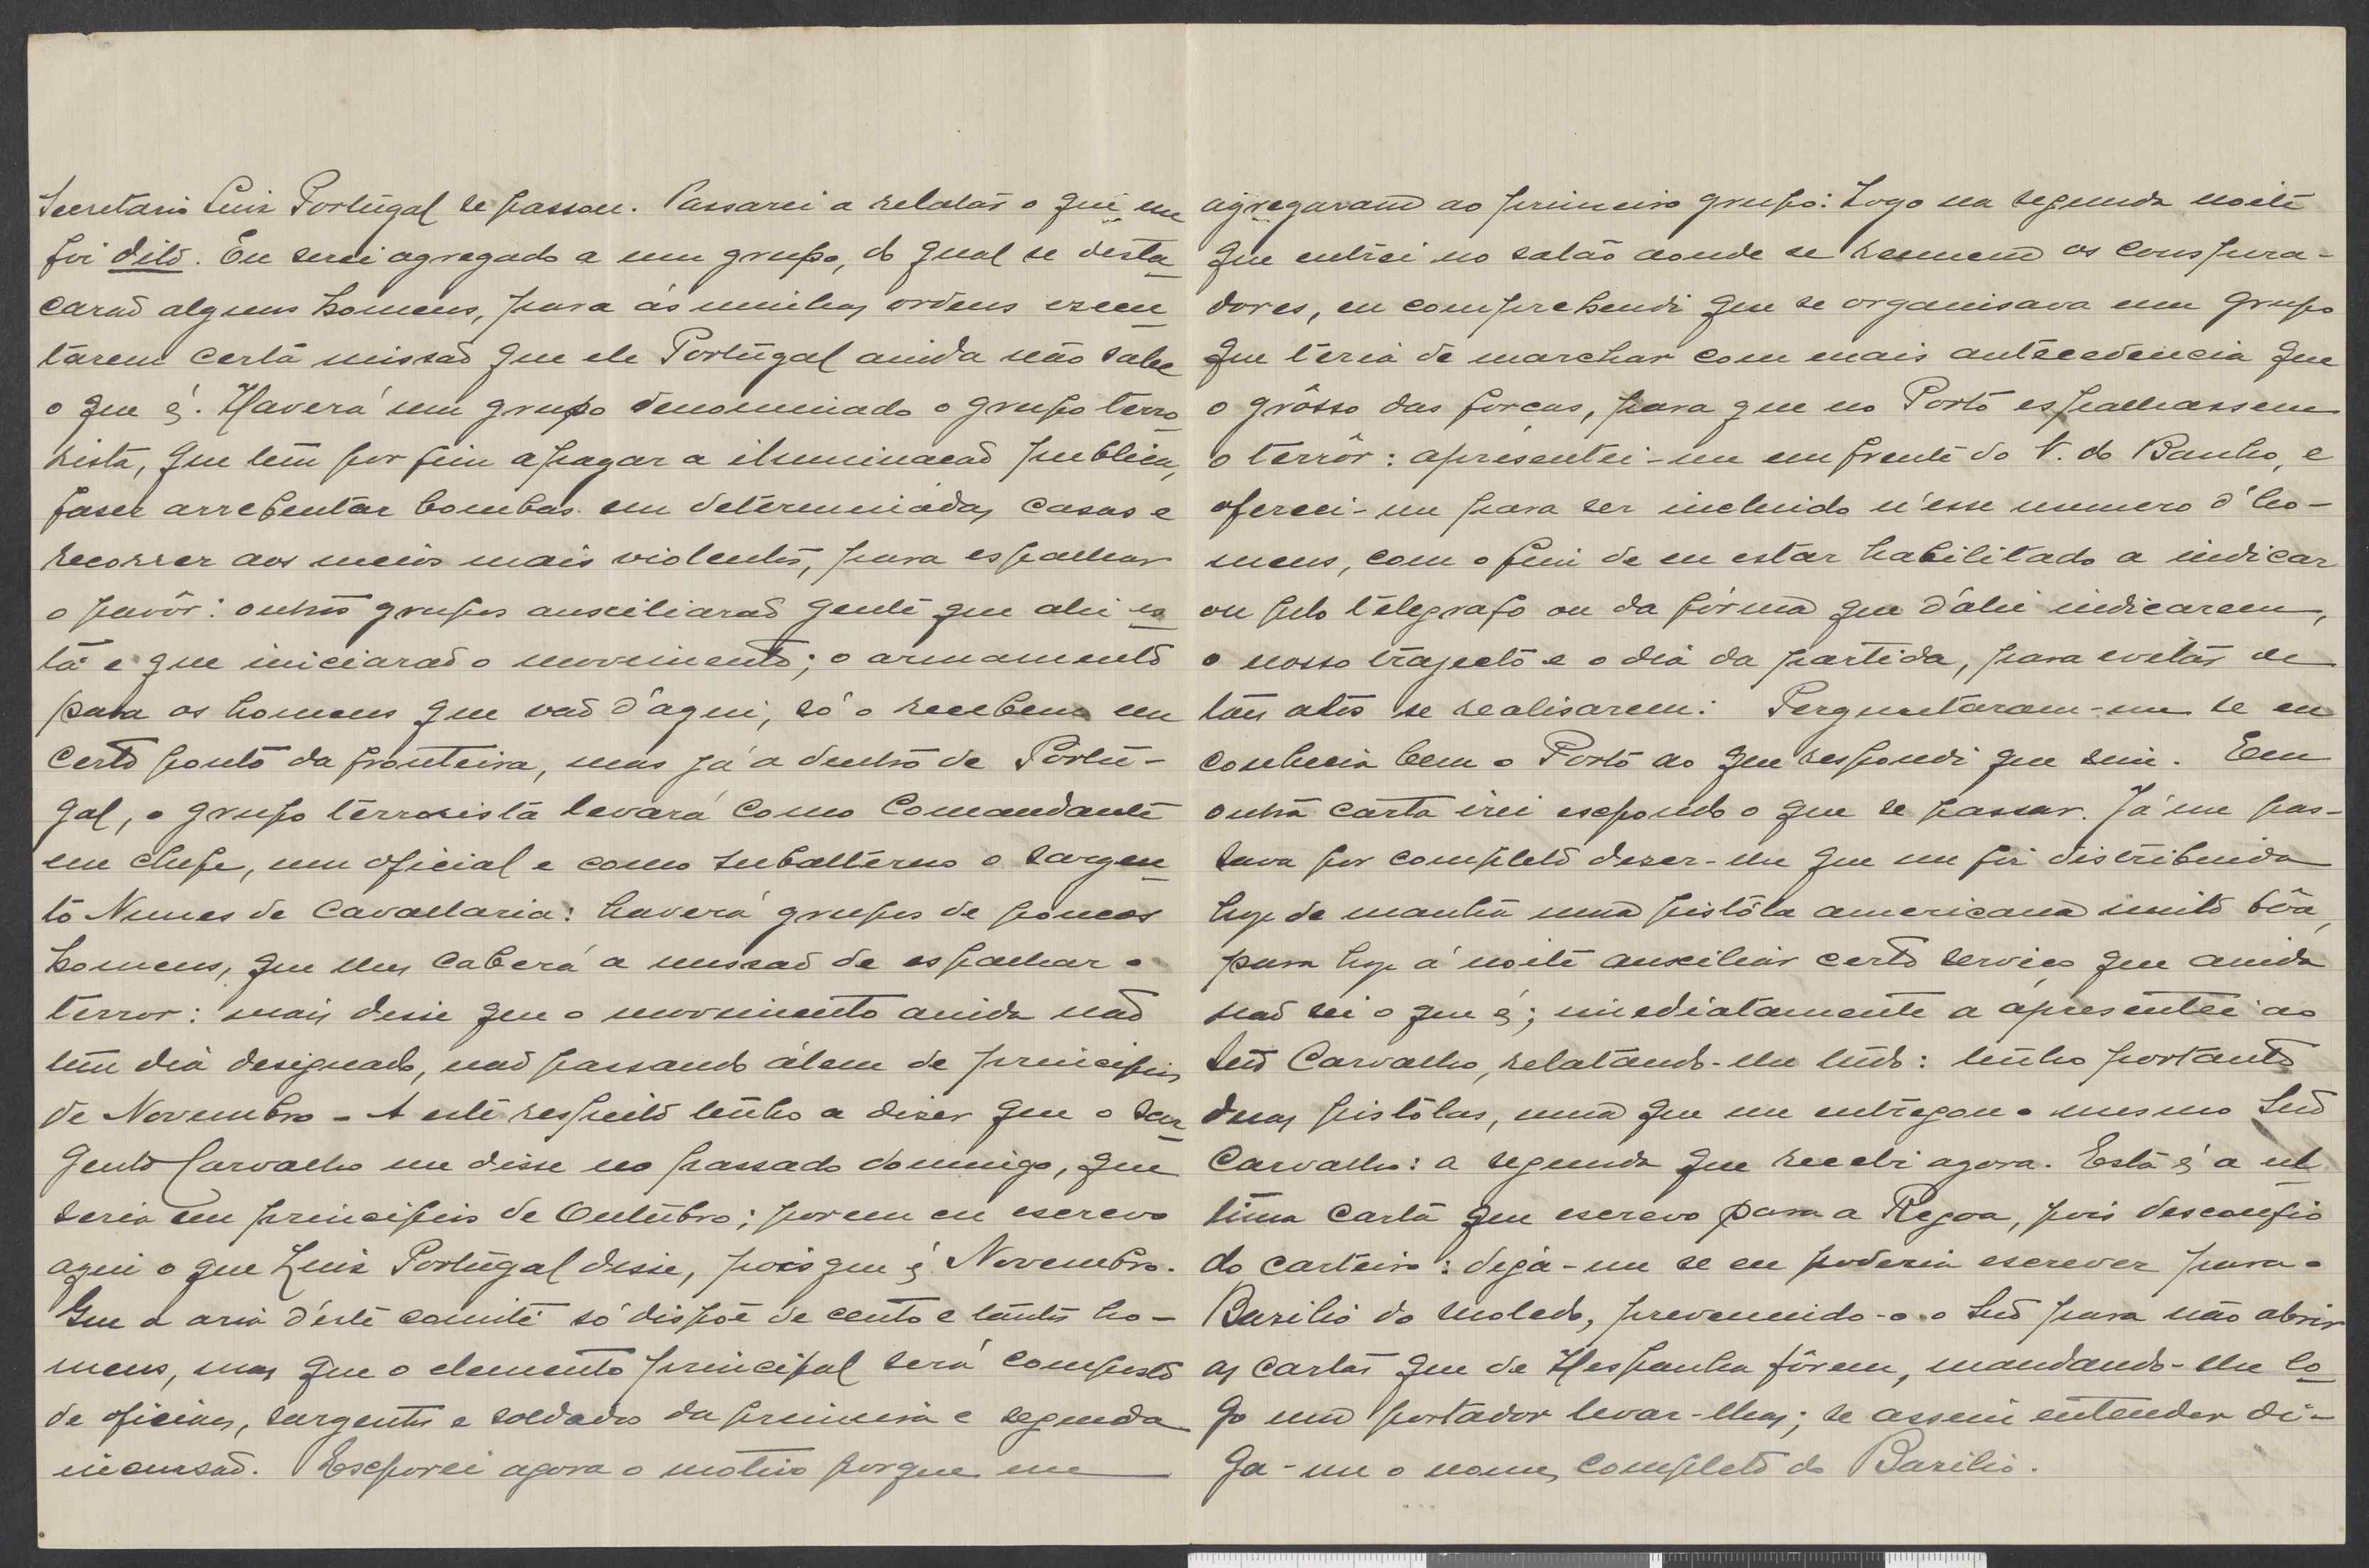 Secretario Luiz Portugal se passou. Passarei a relatar o que me
foi dito. Eu serei agregado a um grupo, do qual se desta
carað alguns homens, para ás minhas ordens execu
tarem certa missað que ele Portugal ainda não sabe
o que é. Haverá um grupo denominado o grupo terro
rista, que tem por fim apagar a iluminacað publica,
faser arrebentar bombas em determinadas casas e
recorrer aos meios mais violentos, para espalhar
o pavôr: outros grupos auxiliarað gente que ahi es
tá e que iniciarað o movimento; o armamento
para os homens que vað d'aqui, só o recebem em
certo ponto da fronteira, mas já a dentro de Portu-
gal, o grupo terrorista levará como Comandante
em chefe, um oficial e como subalterno o sargen
to Nunes de Cavallaria: haverá grupos de poucos
homens, que lhes caberá a missað de espalhar o
terror: mais disse que o movimento ainda nað
tem dia designado, nað passando álem de principios
de Novembro - A este respeito tenho a diser que o Sar
gento Carvalho me disse no passado domingo, que
seria em principios de Outubro; porem eu escrevo
aqui o que Luiz Portugal disse, pois que é Novembro.
Que a aria d'este comité só dispôe de cento e tantos ho-
mens, mas que o elemento principal será composto
de oficiais, sargentos e soldados da primeira e segunda
incursað. Exporei agora o motivo porque me
agregaram ao primeiro grupo: Logo na segunda noite
que entrei no salão aonde se reunem os conspira-
dores, eu comprehendi que se organisava um grupo
que teria de marchar com mais antecedencia que
o grôsso das forcas, para que no Porto espalhassem
o terrôr: apresentei-me em frente do V. do Banho, e
ofereci-me para ser incluido n'esse numero d'ho-
mens, com o fim de eu estar habilitado a indicar
ou pelo telegrafo ou da fórma que d'ahi indicarem,
o nosso trajecto e o dia da partida, para evitar de
tais atos se realisarem: Perguntaram-me se eu
conhecia bem o Porto ao que respondi que sim. Em
outra carta irei expondo o que se passar. Já me pas-
sava por completo dezer-lhe que me foi distribuida
hoje de manhã uma pistóla americana muito bôa,
para hoje á noite auxiliar certo servico que ainda
nað sei o que é; imediatamente a apresentei ao
Snr Carvalho, relatando-lhe tudo: tenho portanto
duas pistólas, uma que me entregou o mesmo Snr
Carvalho: a segunda que recebi agora. Esta é a ul
tima carta que escrevo para a Regoa, pois desconfio
do carteiro: diga-me se eu poderia escrever para o
Basilio do Moledo, prevenindo-o o Snr para não abrir
as cartas que de Hespanha fôrem, mandando-lhe lo
go um portador levar-lhas; se assim entender di-
ga-me o nome completo do Basilio.